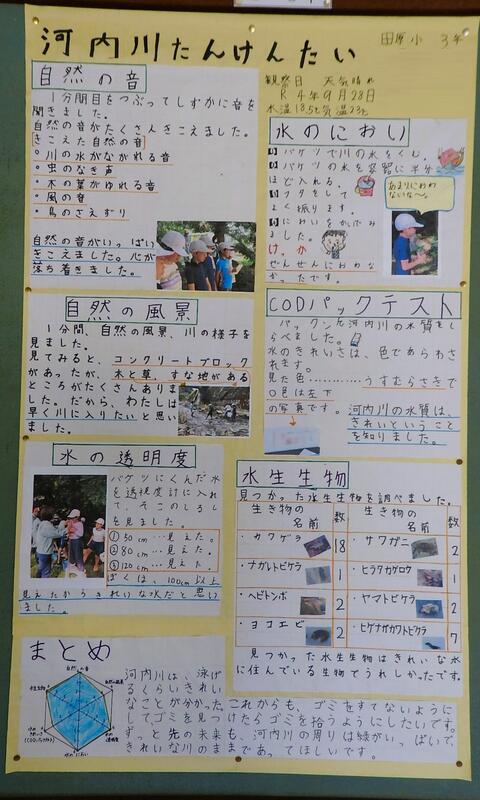 河内川たんけんたい
田原小 3年
観察日 天気 晴れ
R4年9月28日
水温18.5℃ 気温23℃
自然の音
1分間目をつぶってしずかに音を
聞きました。
自然の音がたくさんきこえました。
きこえた自然の音
・川の水がながれる音
・虫のなき声
・木の葉がゆれる音
・風の音
・鳥のさえずり
自然の音がいっぱい
きこえました。心が
落ち着きました。
水のにおい
①バケツで川の水をくむ。
②バケツの水を容器に半分
ほど入れる。
③フタをして
よく振ります。
④においをかぎみ
ました。
けっか
ぜんぜんにおわな
かったです。
あまりにおわ
ないな〜。
自然の風景
1分間、自然の風景、川の様子を
見ました。
見てみると、コンクリートブロック
があったが、木と草、すな地がある
ところがたくさんありま
した。だから、わたしは
早く川に入りたいと思い
ました。
CODパックテスト
パックンで河内川の水質をし
らべました。
水のきれいさは、色であらわさ
れます。
見た色…………うすむらさきで
0色は左下
の写真です。
河内川の水質は、
きれいということ
を知りました。
水の透明度
バケツにくんだ水
を透視度計に入れ
て、そこのしるし
を見ました。
①50cm…見えた。
②80cm…見えた。
③120cm…見えた。
ぼくは、100cm以上
見えたからきれいな水だと思い
ました。
水生生物
見つかった水生生物を調べました。
生き物の名前 数 生き物の名前 数
・カワゲラ 18 ・サワガニ 2
・ナガレトビケラ 1 ・ヒラタカゲロウ 1
・ヘビトンボ 2 ・ヤマトビケラ 2
・ヨコエビ 2 ・ヒゲナガカワトビケラ 7
見つかった水生生物はきれいな水
に住んでいる生物でうれしかったです。
まとめ
自然の音
自然の風景
水の透明度
水のにおい
水生生物
河内川は、泳げ
るくらいきれい
なことが分かった。これからも、ゴミをすてないように
して、ゴミを見つけたらゴミを拾うようにしたいです。
ずっと先の未来も、河内川の周りは緑がいっぱいで、
きれいな川のままであってほしいです。